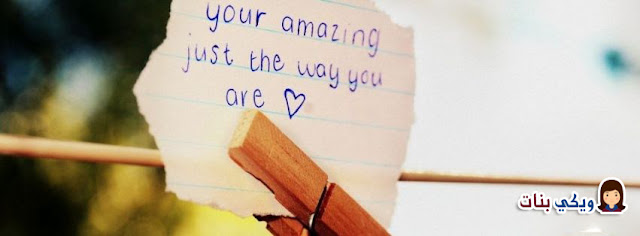 your amazing
just the way you
are ♡
ويكي بنات